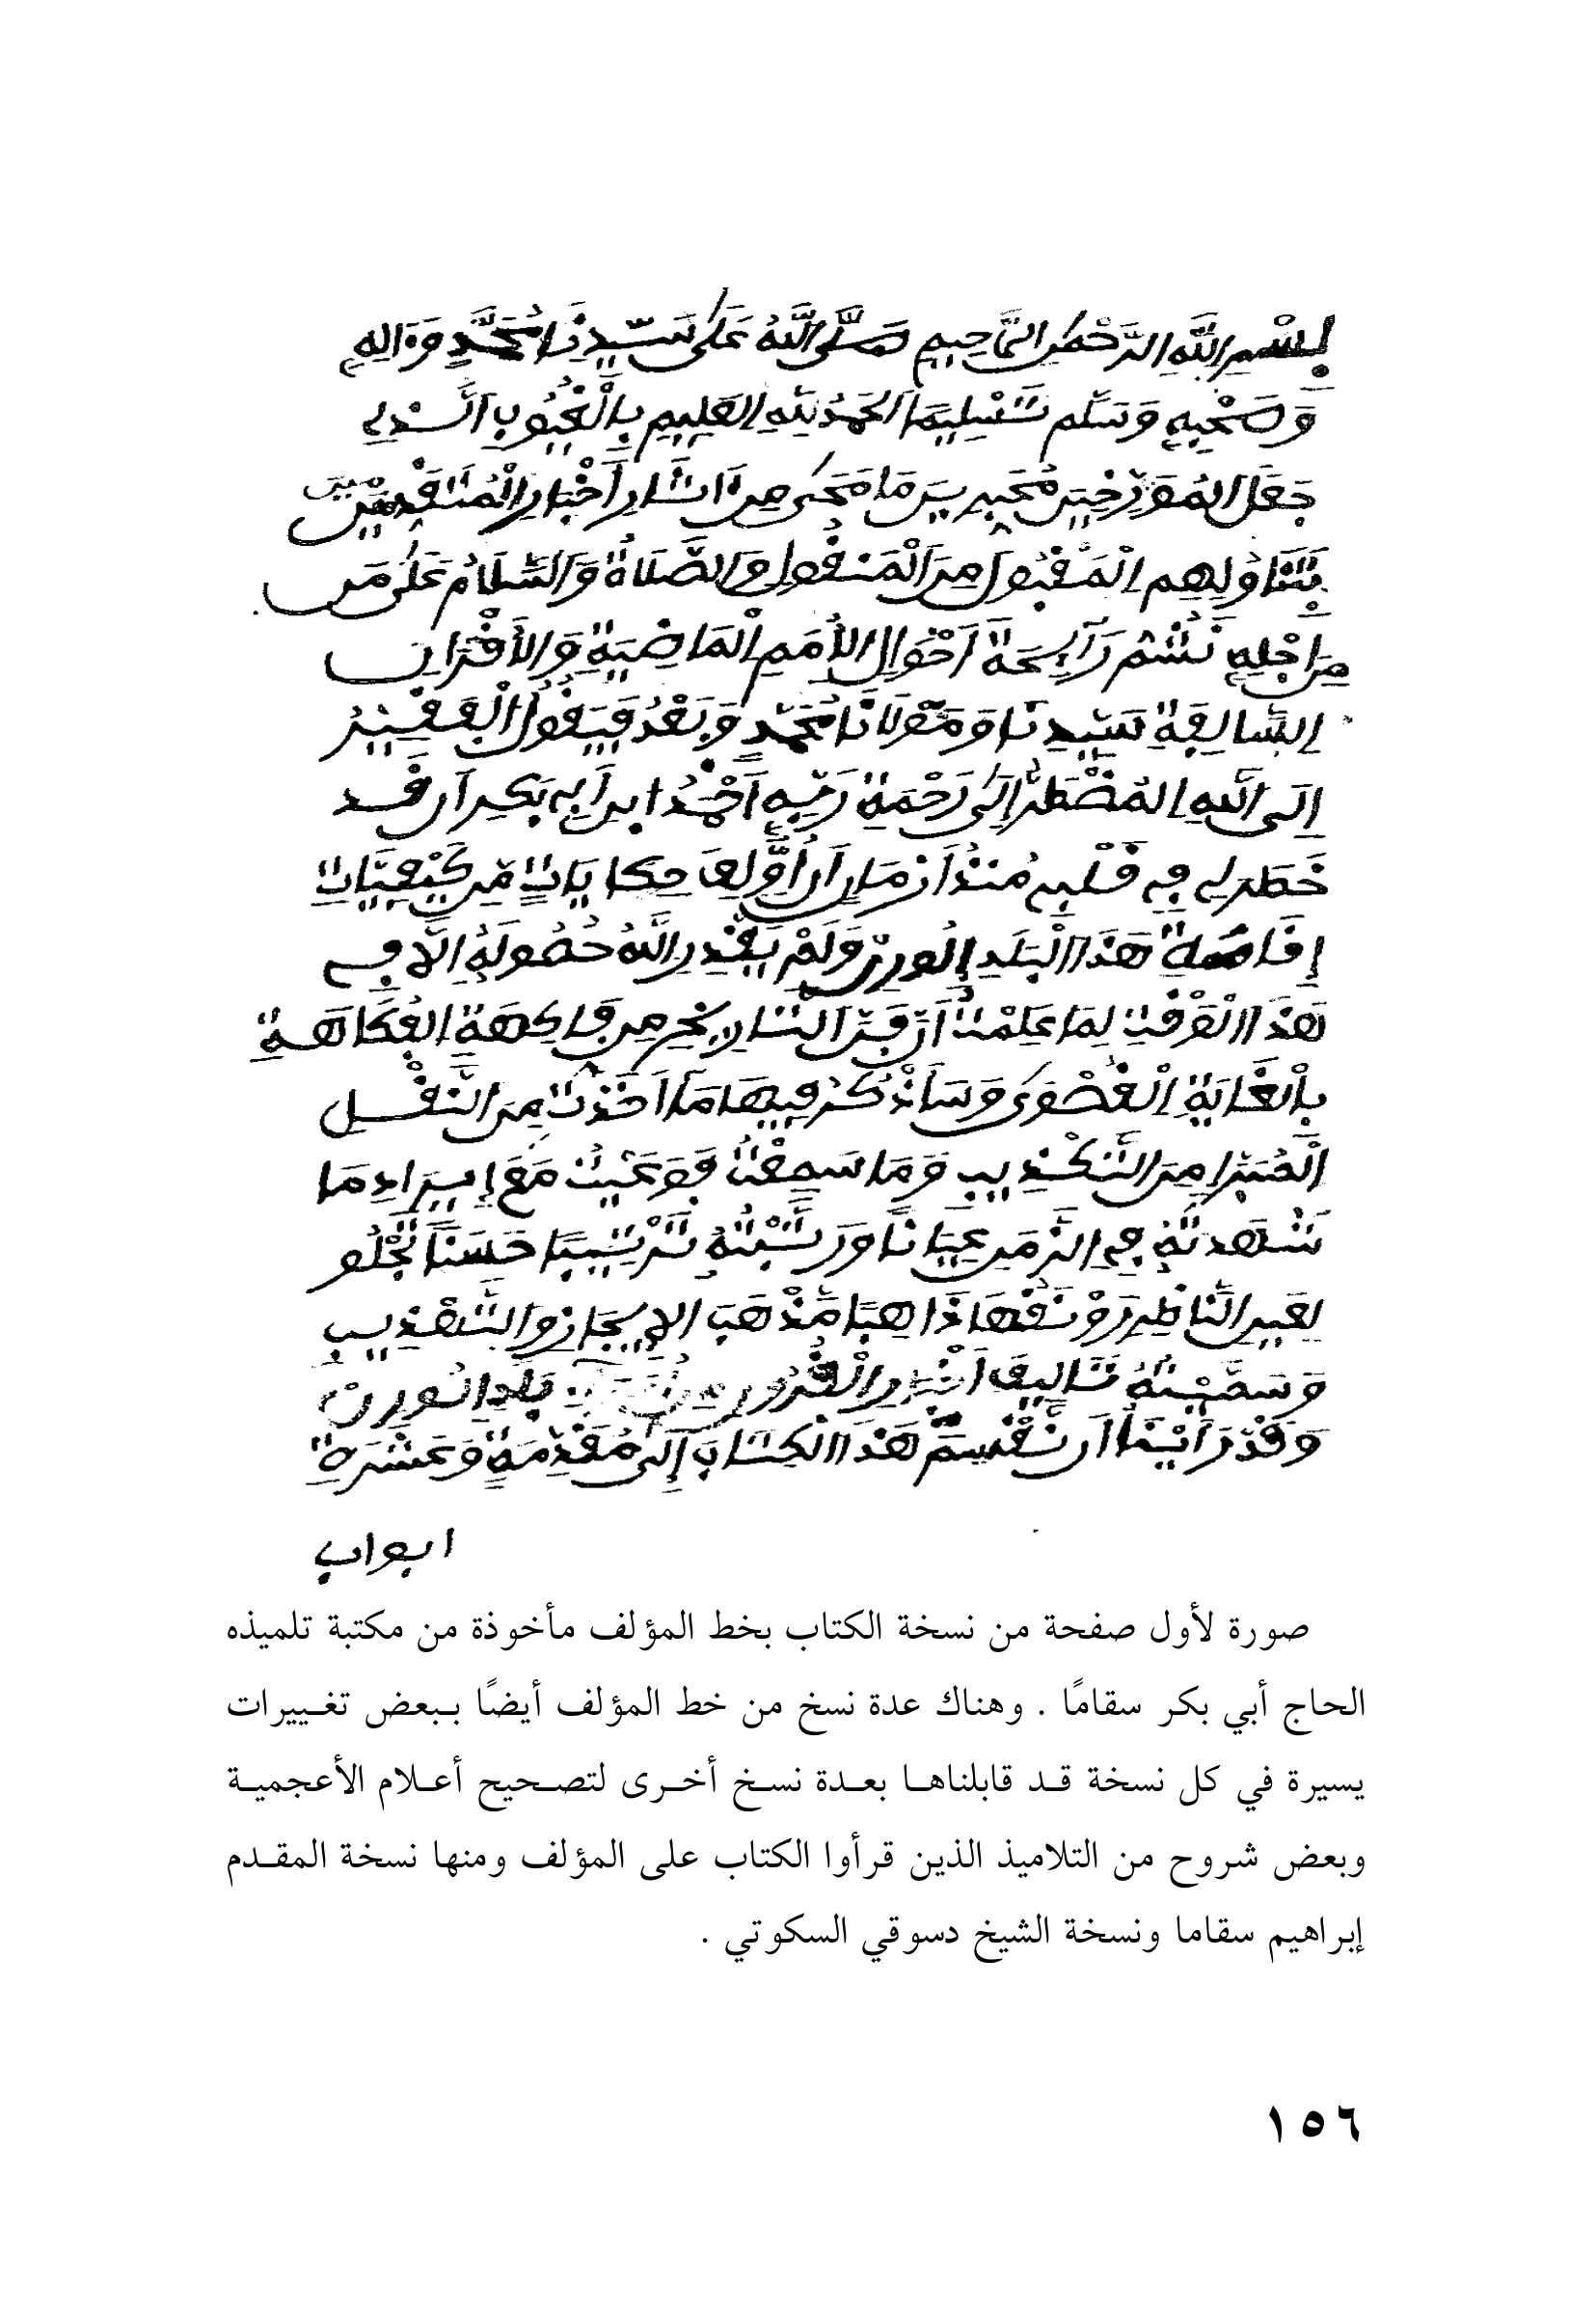 بِسْمِ اللَّهِ الرَّحْمَنِ الرَّحِيمِ صَلَّى اللَّهُ عَلَى سَيِّدِنَا مُحَمَّدٍ وَءَالِهِ
وَصَحْبِهِ وَسَلَّم تَسْلِيمًا اَلْحَمْدُ لِلَّهِ الْعَلِيمِ بِالْغُيُوبِ اَلَّذِي
جَعَلَ الْمُوَرِّخِينَ مُخْبِرِينَ مَا مَحَى مِنْ ءَاثَارِ أَخْبَارِ الْمُتَقَدِّمِينَ
بِتَنَاوُلِهِم الْمَقْبُولَ مِنَ الْمَنقُولِ وَالصَّلَاةُ وَالسَّلَامُ عَلَى مَن
مِنَ اجْلِهِ نَشُمُّ رَآيِحَةَ اَحْوَالِ الأُمَمِ الْمَاضِيَةِ وَالأَقْرَانِ
السَّالِفَةِ سَيِّدِنَا وَمَوْلَانَا مُحَمَّدٍ وَبَعْدُ فَيَقُولُ الْفَقِيرُ
إِلَى اللَّهِ الْمُضْطَرُّ إِلَى رَحْمَةِ رَبِّهِ اَحْمَدُ ابن أَبِي بَكِر اَن قَد
خَطَرَ لِي فِي قَلْبِي مُنذُ اَزْمَانٍ اَن اُوَلِّفَ حِكَايَاتٍ مِّن كَيْفِيَّاتِ
إِقَامَةِ هَذَا الْبَلَدِ وَلَمْ يَقْدِرِ اللَّهُ حُصُولَهُ إِلَّا فِي
هَذَا الْوَقْتِ لِمَا عَلِمْتُ أَنَّ فَنَّ التَّارِيخِ مِن فَاكِهَةِ الْفُكَاهَةِ
بِالْغَايَةِ الْقُصْوَى وَسَأَذْكُرُ فِيهَا مَا اَخَذْتُ مِنَ النَّقْلِ
الْمُبَرَّا مِنَ التَّكْذِيبِ وَمَا سَمِعْتُ فَوَعَيْتُ مَعَ إِيرَادِ مَا
شَهَدتُّهُ فِي الزَّمَنِ عِيَانًا وَرَتَّبْتُهُ تَرْتِيبًا حَسَنًا يَّجْلُو
لِعَيْنِ النَّاظِرِ رَوْنَقُهَا ذَاهِبًا مَّذْهَبَ الإِيجَازِ وَالتَّهْذِيبِ
وَسَمَّيْتُهُ
وَقَدْ رَأَيْنَا اَن نَّقْسِمَ هَذَا الْكِتَابَ إِلَى مُقَدِّمَةٍ وَعَشْرَةِ
ابواب
صورة لأول صفحة من نسخة الكتاب بخط المؤلف مأخوذة من مكتبة تلميذه
الحاج أبي بكر سقامًا . وهناك عدة نسخ من خط المؤلف أيضًا ببعض تغييرات
يسيرة في كل نسخة قد قابلناها بعدة نسخ أخرى لتصحيح أعلام الأعجمية
وبعض شروح من التلاميذ الذين قرأوا الكتاب على المؤلف ومنها نسخة المقدم
إبراهيم سقاما ونسخة الشيخ دسوقي السكوتي .
١٥٦